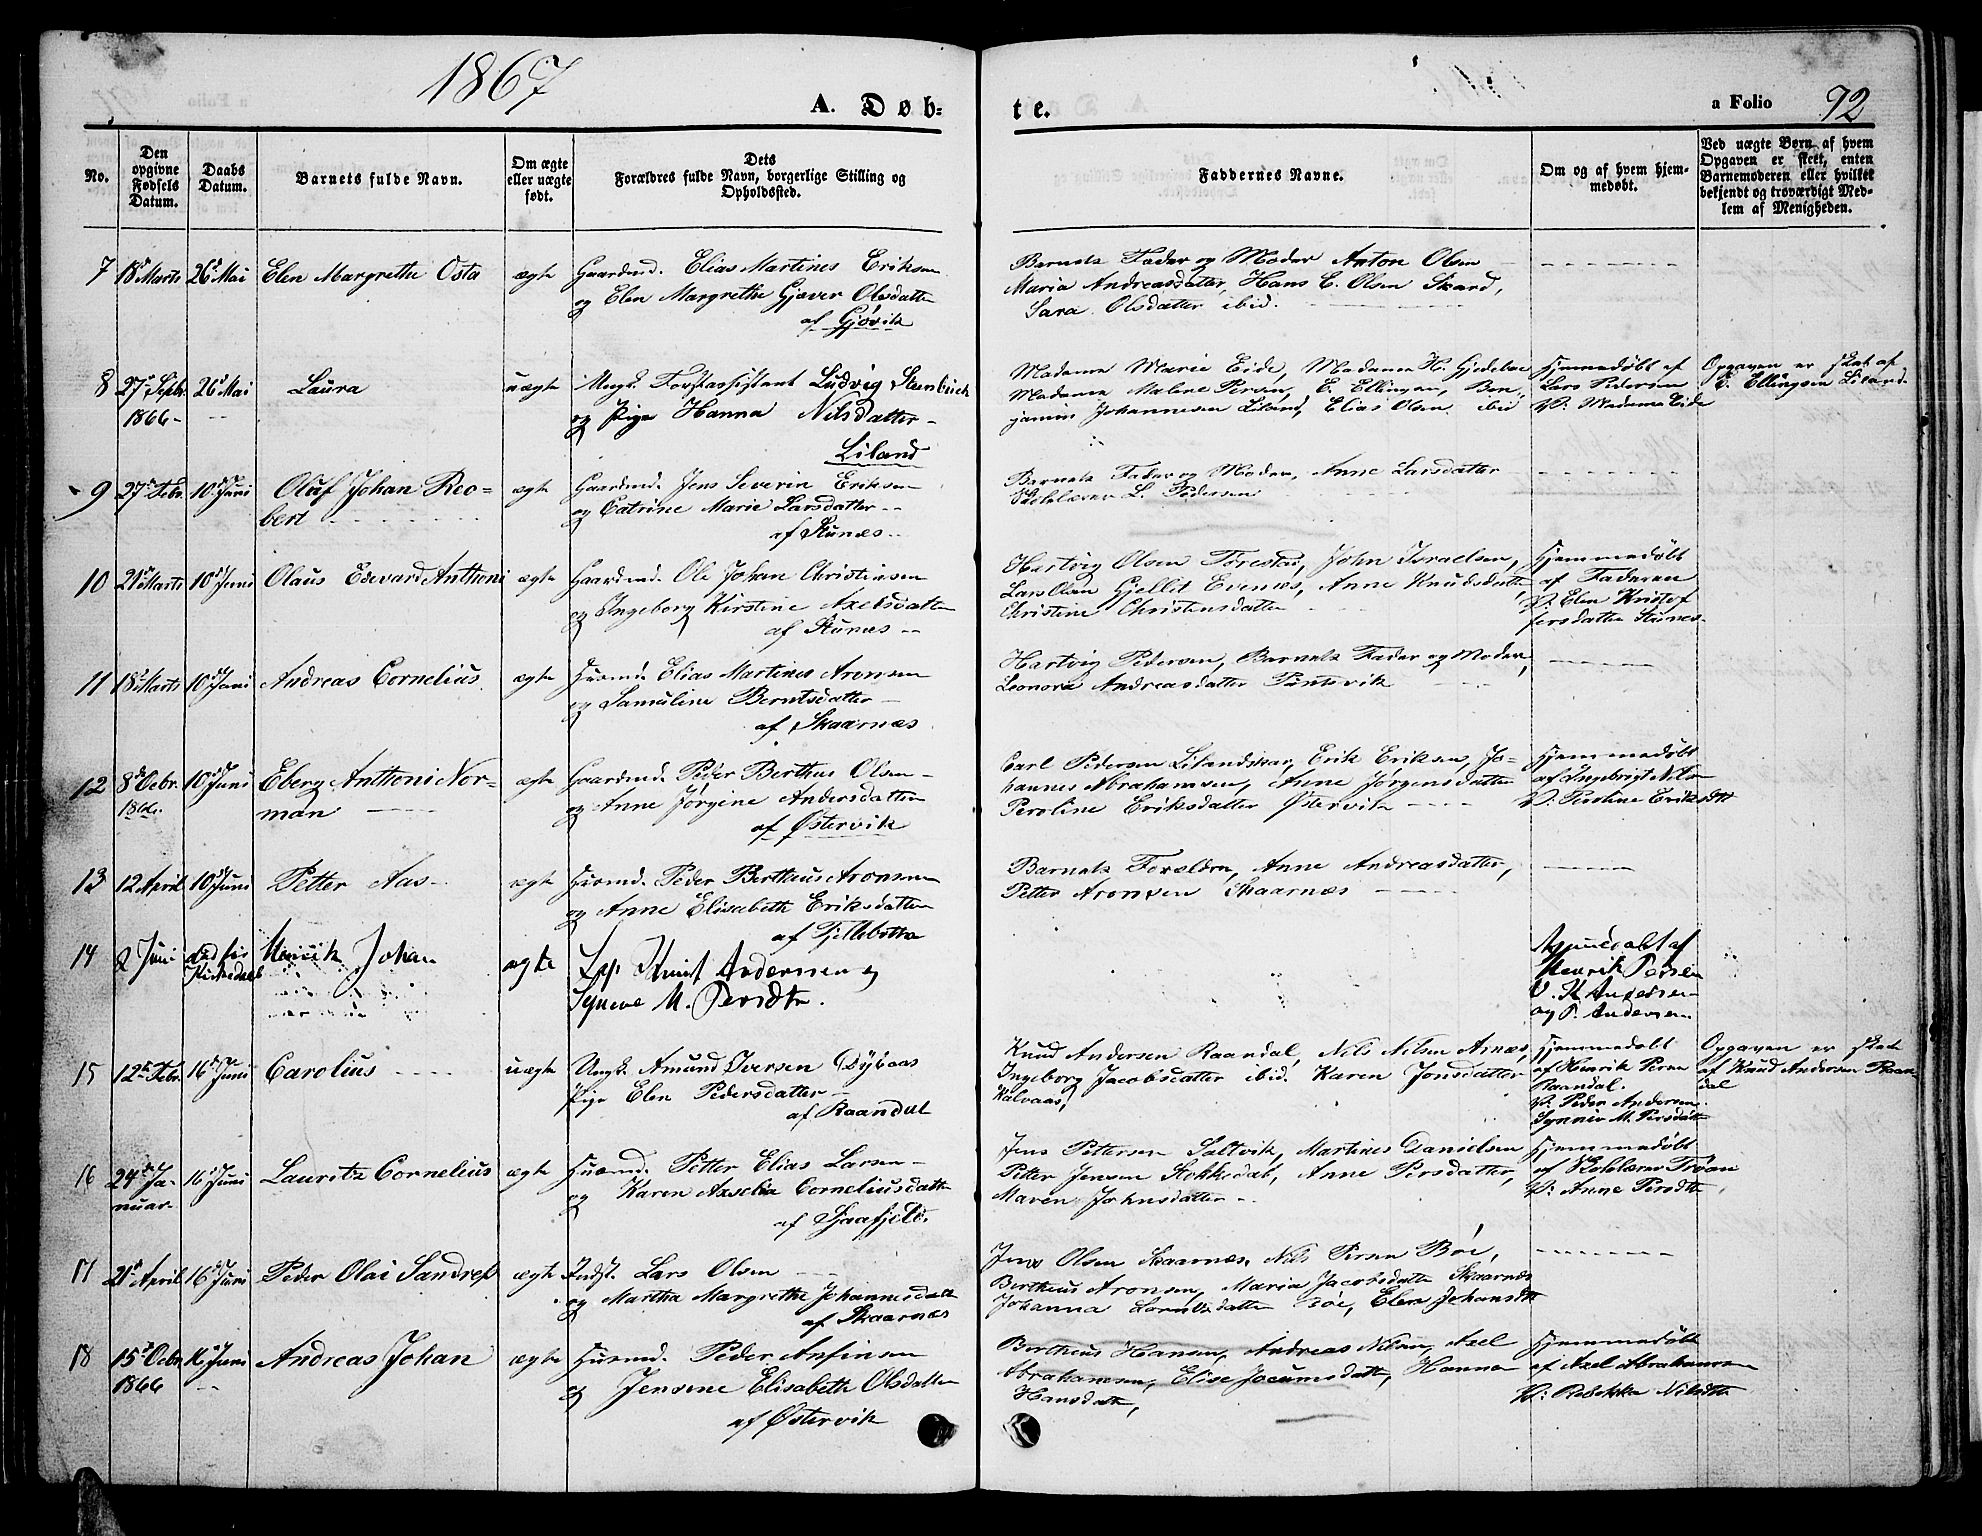 1867
A. Døb=
te.
a Folio 92
No.
Den opgivne Fødsels Datum.
Daabs Datum.
Barnets fulde Navn.
Om ægte eller uægte født.
Dets Forældres fulde Navn, borgerlige Stilling og Opholdssted.
Faddernes Navne.
Om og af hvem hjemmedøbt.
Ved uægte Børn af hvem Opgaven er skeet, enten Barnemoderen eller hvilket bekjendt og troværdigt Medlem af Menigheden.
7 18de Marts 26de Mai Elen Margrethe Osta ægte Gaardmd. Elias Martines Eriksen
og Elen Margrethe Gjæver Olsdatter
af Gjøvik
Barnets Fader og Moder Anton Olsen
Maria Andreasdatter, Hans E. Olsen Skard,
Sara Olsdatter ibid.
8 27de Septr. 26de Mai Laura uægte Ungk. Forstassistent Ludvig Steenbuch
1866 og Pige Hanna Nilsdatter
Liland
Madame Marie Eide, Madame H.
Madame Malene Persen, E. Ellingsen, Ben
jamin Johannesen Liland, Elias Olsen ibid
Hjemmedøbt af
Lars Pedersen
V: Madame Eide
Opgaven er skat af
E. Ellingsen Liland
9 27de Febr. 10de Juni Oluf Johan Reo=
bert
ægte Gaardmd. Jens Severin Eriksen
og Catrine Marie Larsdatter
af Stunes
Barnets Fader og Moder, Anne Larsdatter
Skolelærer L. Pedersen
10 21de Marts 10de Juni Olaus Edevard Anthoni ægte Gaardmd. Ole Johan Christensen
og Ingeborg Kirstine Axelsdatter
af Stunes
Hartvig Olsen Torestad, John Israelsen,
Lars Olsen Evenes, Anne Knudsdatter
Christine Christensdatter
Hjemmedøbt
af Faderen
V: Elen Kristof
fersdatter Stunes
11 18de Marts 10de Juni Andreas Cornelius ægte Husmd. Elias Martines Aronsen
og Samuline Berntsdatter
af Skaarnæs
Hartvig Pedersen, Barnets Fader og Moder,
Leonora Andreasdatter
12 8de Octbr. 10de Juni Eberg Anthoni Nor=
1866 man
ægte Gaardmd. Peder Berthus Olsen
og Anne Jørgine Andersdatter
af Østervik
Carl Pedersen Lilandskar, Erik Eriksen, Jo-
hannes Abrahamsen, Anne Jørgensdatter
Peroline Eriksdatter Østervik
Hjemmedøbt
af Ingebrigt Nils
V: Peroline Eriksdtt
13 12 April 10de Juni Petter Aas ægte Husmd. Peder Bertheus Aronsen
og Anne Elisabeth Eriksdatter
af Fjellebotten
Barnets Forældre, Anne Andreasdatter,
Petter Aronsen Skaarnæs
14 2 Juni død før
Kirkedaab
Henrik Johan ægte Knut Andersen og
Synneve M. Persdtr.
Hjemmedøbt af
Henrik Persen
V. K Andersen
og P. Andersen
15 12te Febr. 16de Juni Carolius uægte Ungk. Amund Iversen Dybaas
Pige Elen Pedersdatter
af Raandal
Knud Andersen Raandal, Nils Nilsen Arnæs,
Ingeborg Jacobsdatter ibid. Karen Jonsdatter
Kalvaas,
Hjemmedøbt
af Henrik Persen
Raandal.
V: Peder Andersen
Synnev M. Persdatt
Opgaven er skat
af Knud Andersen Raan
dal
16 24de Ja-
nuar
16 Juni Lauritz Cornelius ægte Husmd. Petter Elias Larsen
og Karen Axselia Corneliusdatter
af Sjaafjeld.
Jens Pettersen Saltvik, Martines Danielsen
Petter Jensen Stokkedal, Anne Persdatter,
Maren Johnsdatter
Hjemmedøbt
af Skolelærer Troan
V: Anne Persdtt
17 21de April 16de Juni Peder Olai Sandrep ægte Indst. Lars Olsen
og Martha Margrethe Johannesdatt
af Skaarnæs
Jens Olsen Skaarnæs, Nils Persen Bøe,
Bertheus Aronsen, Maria Jacobsdatt Skaarnæs
Johanna Bøe, Elen Johansdtt
18 15de Octbr. 16 Juni Andreas Johan ægte Husmd. Peder Anfinsen
1866 og Jensene Elisabeth Olsdatter
af Østervik
Bertheus Hansen, Andreas Nilsen, Axel
Abrahamsen, Elise Jocumsdatt, Hanna
Hansdatt,
Hjemmedøbt
af Axel Abrahamsen
V: Rebekka Nilsdtt